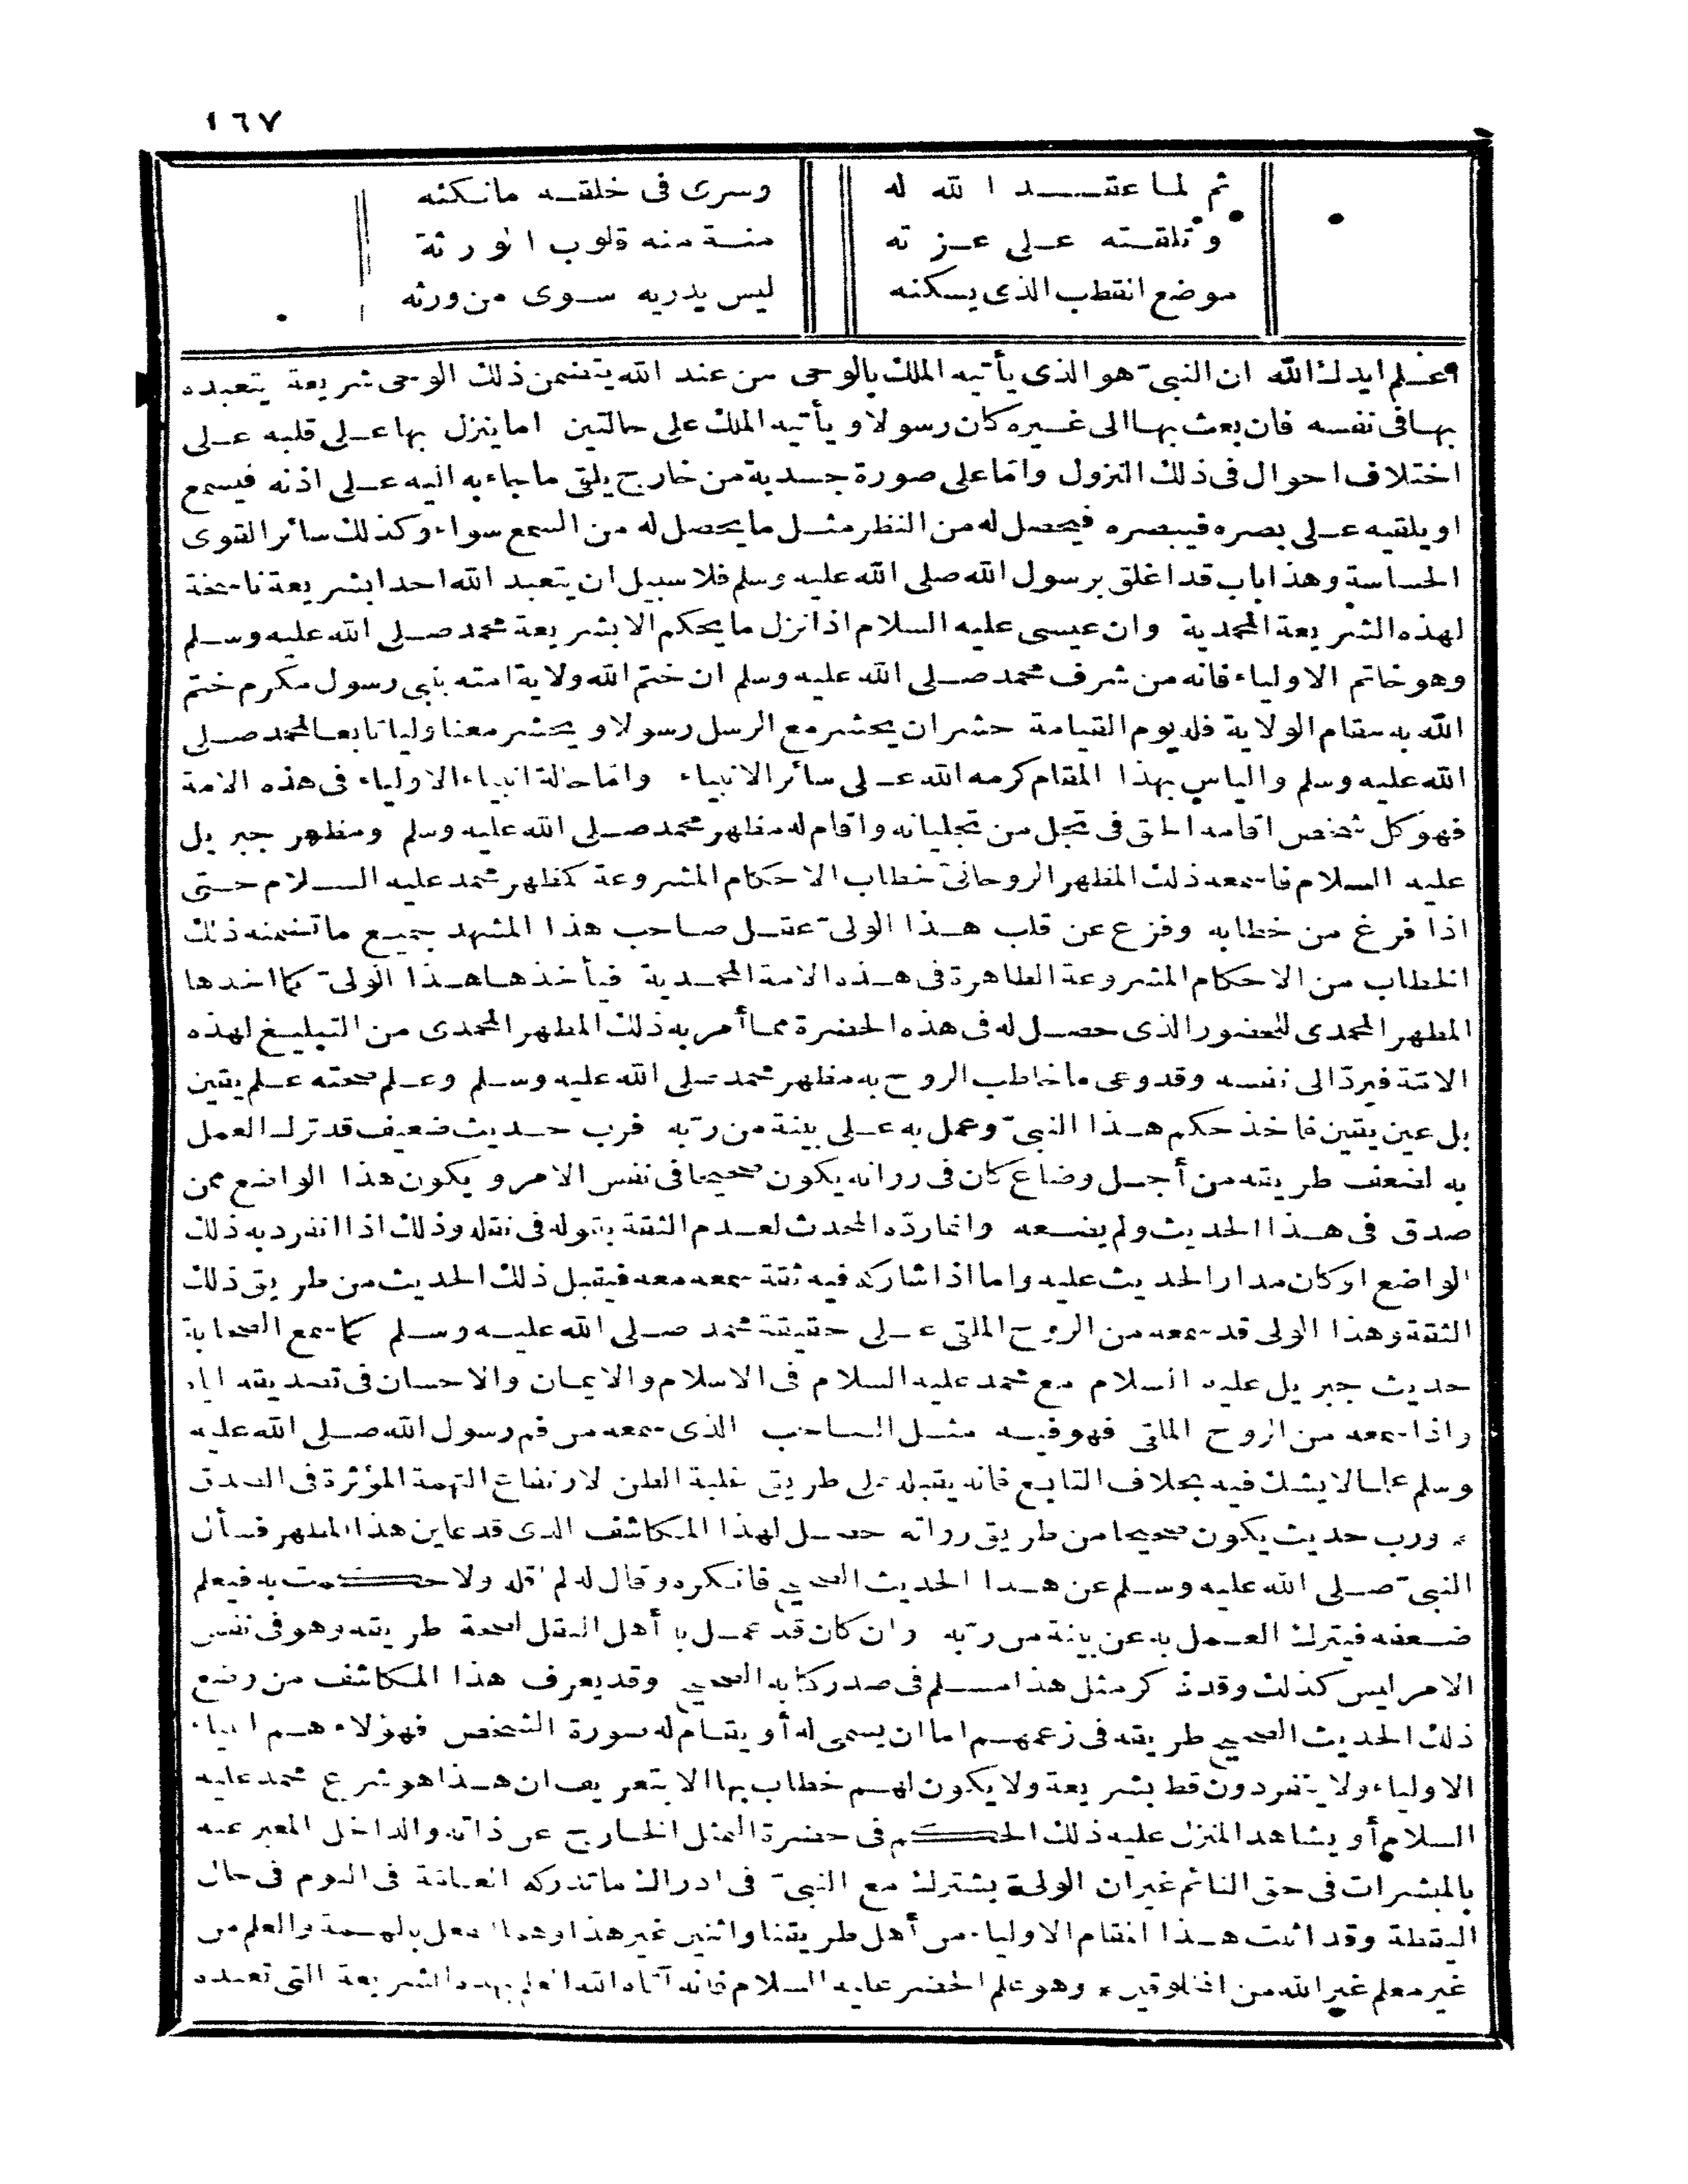 ١٦٧
ثم لما عقد الله له وسرى فى خلقه مانكثه
وتلقته على عزته منة منه قلوب الورثة
موضع القطب الذى يسكنه ليس يدريه سوى من ورثه
اعلم ايدك الله ان النبى هو الذى يأتيه الملك بالوحى من عند الله يتضمن ذلك الوحى شريعة يتعبده
بها فى نفسه فان بعث بها الى غيره كان رسولا ويأتيه الملك على حالتين اما ينزل بها على قلبه على
اختلاف احوال فى ذلك التنزل واما على صورة جسدية من خارج يلقى ما جاء به اليه على اذنه فيسمع
او يلقيه على بصره فيبصره فيحصل له من النظر مثل ما يحصل له من السمع سواء وكذلك سائر القوى
الحساسة وهذا باب قد اغلق برسول الله صلى الله عليه وسلم فلا سبيل ان يتعبد الله احدا بشريعة ناسخة
لهذه الشريعة المحمدية وان عيسى عليه السلام اذا نزل ما يحكم الا بشريعة محمد صلى الله عليه وسلم
وهو خاتم الاولياء فانه من شرف محمد صلى الله عليه وسلم ان ختم الله ولاية امته بنبى رسول مكرم ختم
الله به مقام الولاية فله يوم القيامة حشران يحشر مع الرسل رسولا ويحشر معنا وليا تابعا لمحمد صلى
الله عليه وسلم والياس بهذا المقام كرمه الله على سائر الانبياء واما حالة انبياء الاولياء فى هذه الامة
فهو كل شخص اقامه الحق فى تجل من تجلياته واقام له مظهر محمد صلى الله عليه وسلم ومظهر جبريل
عليه السلام فاسمعه ذلك المظهر الروحانى خطاب الاحكام المشروعة لمظهر محمد عليه السلام حتى
اذا فرغ من خطابه وفزع عن قلب هذا الولى عقل صاحب هذا المشهد جميع ما تضمنه ذلك
الخطاب من الاحكام المشروعة الظاهرة فى هذه الامة المحمدية فيأخذها هذا الولى كما اخذها
المظهر المحمدى للحضور الذى حصل له فى هذه الحضرة مما أمر به ذلك المظهر المحمدى من التبليغ لهذه
الامة فيرد الى نفسه وقد وعى ما خاطب الروح به مظهر محمد صلى الله عليه وسلم وعلم صحته علم يقين
بل عين يقين فاخذ حكم هذا النبى وعمل به على بينة من ربه فرب حديث ضعيف قد ترك العمل
به لضعف طريقه من أجل وضاع كان فى رواته يكون صحيحا فى نفس الامر ويكون هذا الواضع ممن
صدق فى هذا الحديث ولم يضعه وانما رده المحدث لعدم الثقة بقوله فى نقله وذلك اذا انفرد به ذلك
الواضع او كان مدار الحديث عليه واما اذا شاركه فيه ثقة سمعه معه فيقبل ذلك الحديث من طريق ذلك
الثقة وهذا الولى قد سمعه من الروح الملقى على حقيقة محمد صلى الله عليه وسلم كما سمع الصحابة
حديث جبريل عليه السلام مع محمد عليه السلام فى الاسلام والايمان والاحسان فى تصديقه اياه
واذا سمعه من الروح الملقى فهو فيه مثل الصاحب الذى سمعه من فم رسول الله صلى الله عليه
وسلم علما لا يشك فيه بخلاف التابع فانه يقبله على طريق غلبة الظن لارتفاع التهمة المؤثرة فى الصدق
* ورب حديث يكون صحيحا من طريق رواته حصل لهذا المكاشف الذى قد عاين هذا المظهر فسأل
النبى صلى الله عليه وسلم عن هذا الحديث الصحيح فانكره وقال له لم اقله ولا حكمت به فيعلم
ضعفه فيترك العمل به عن بينة من ربه وان كان قد عمل به أهل النقل لصحة طريقه وهو فى نفس
الامر ليس كذلك وقد ذكر مثل هذا مسلم فى صدر كتابه الصحيح وقد يعرف هذا المكاشف من وضع
ذلك الحديث الصحيح طريقه فى زعمهم اما ان يسمى له أو يقام له صورة الشخص فهؤلاء هم انبياء
الاولياء ولا يتفردون قط بشريعة ولا يكون لهم خطاب بها الا بتعريف ان هذا هو شرع محمد عليه
السلام أو يشاهد المنزل عليه ذلك الحكم فى حضرة التمثل الخارج عن ذاته والداخل المعبر عنه
بالمبشرات فى حق النائم غير ان الولى يشترك مع النبى فى ادراك ما تدركه العامة فى النوم فى حال
اليقظة وقد اثبت هذا المقام الاولياء من أهل طريقنا واثنين غير هذا وهما الفعل بالهمة والعلم من
غير معلم غير الله من المخلوقين * وهو علم الخضر عليه السلام فانه آتاه الله العلم بهذه الشريعة التى تعبده